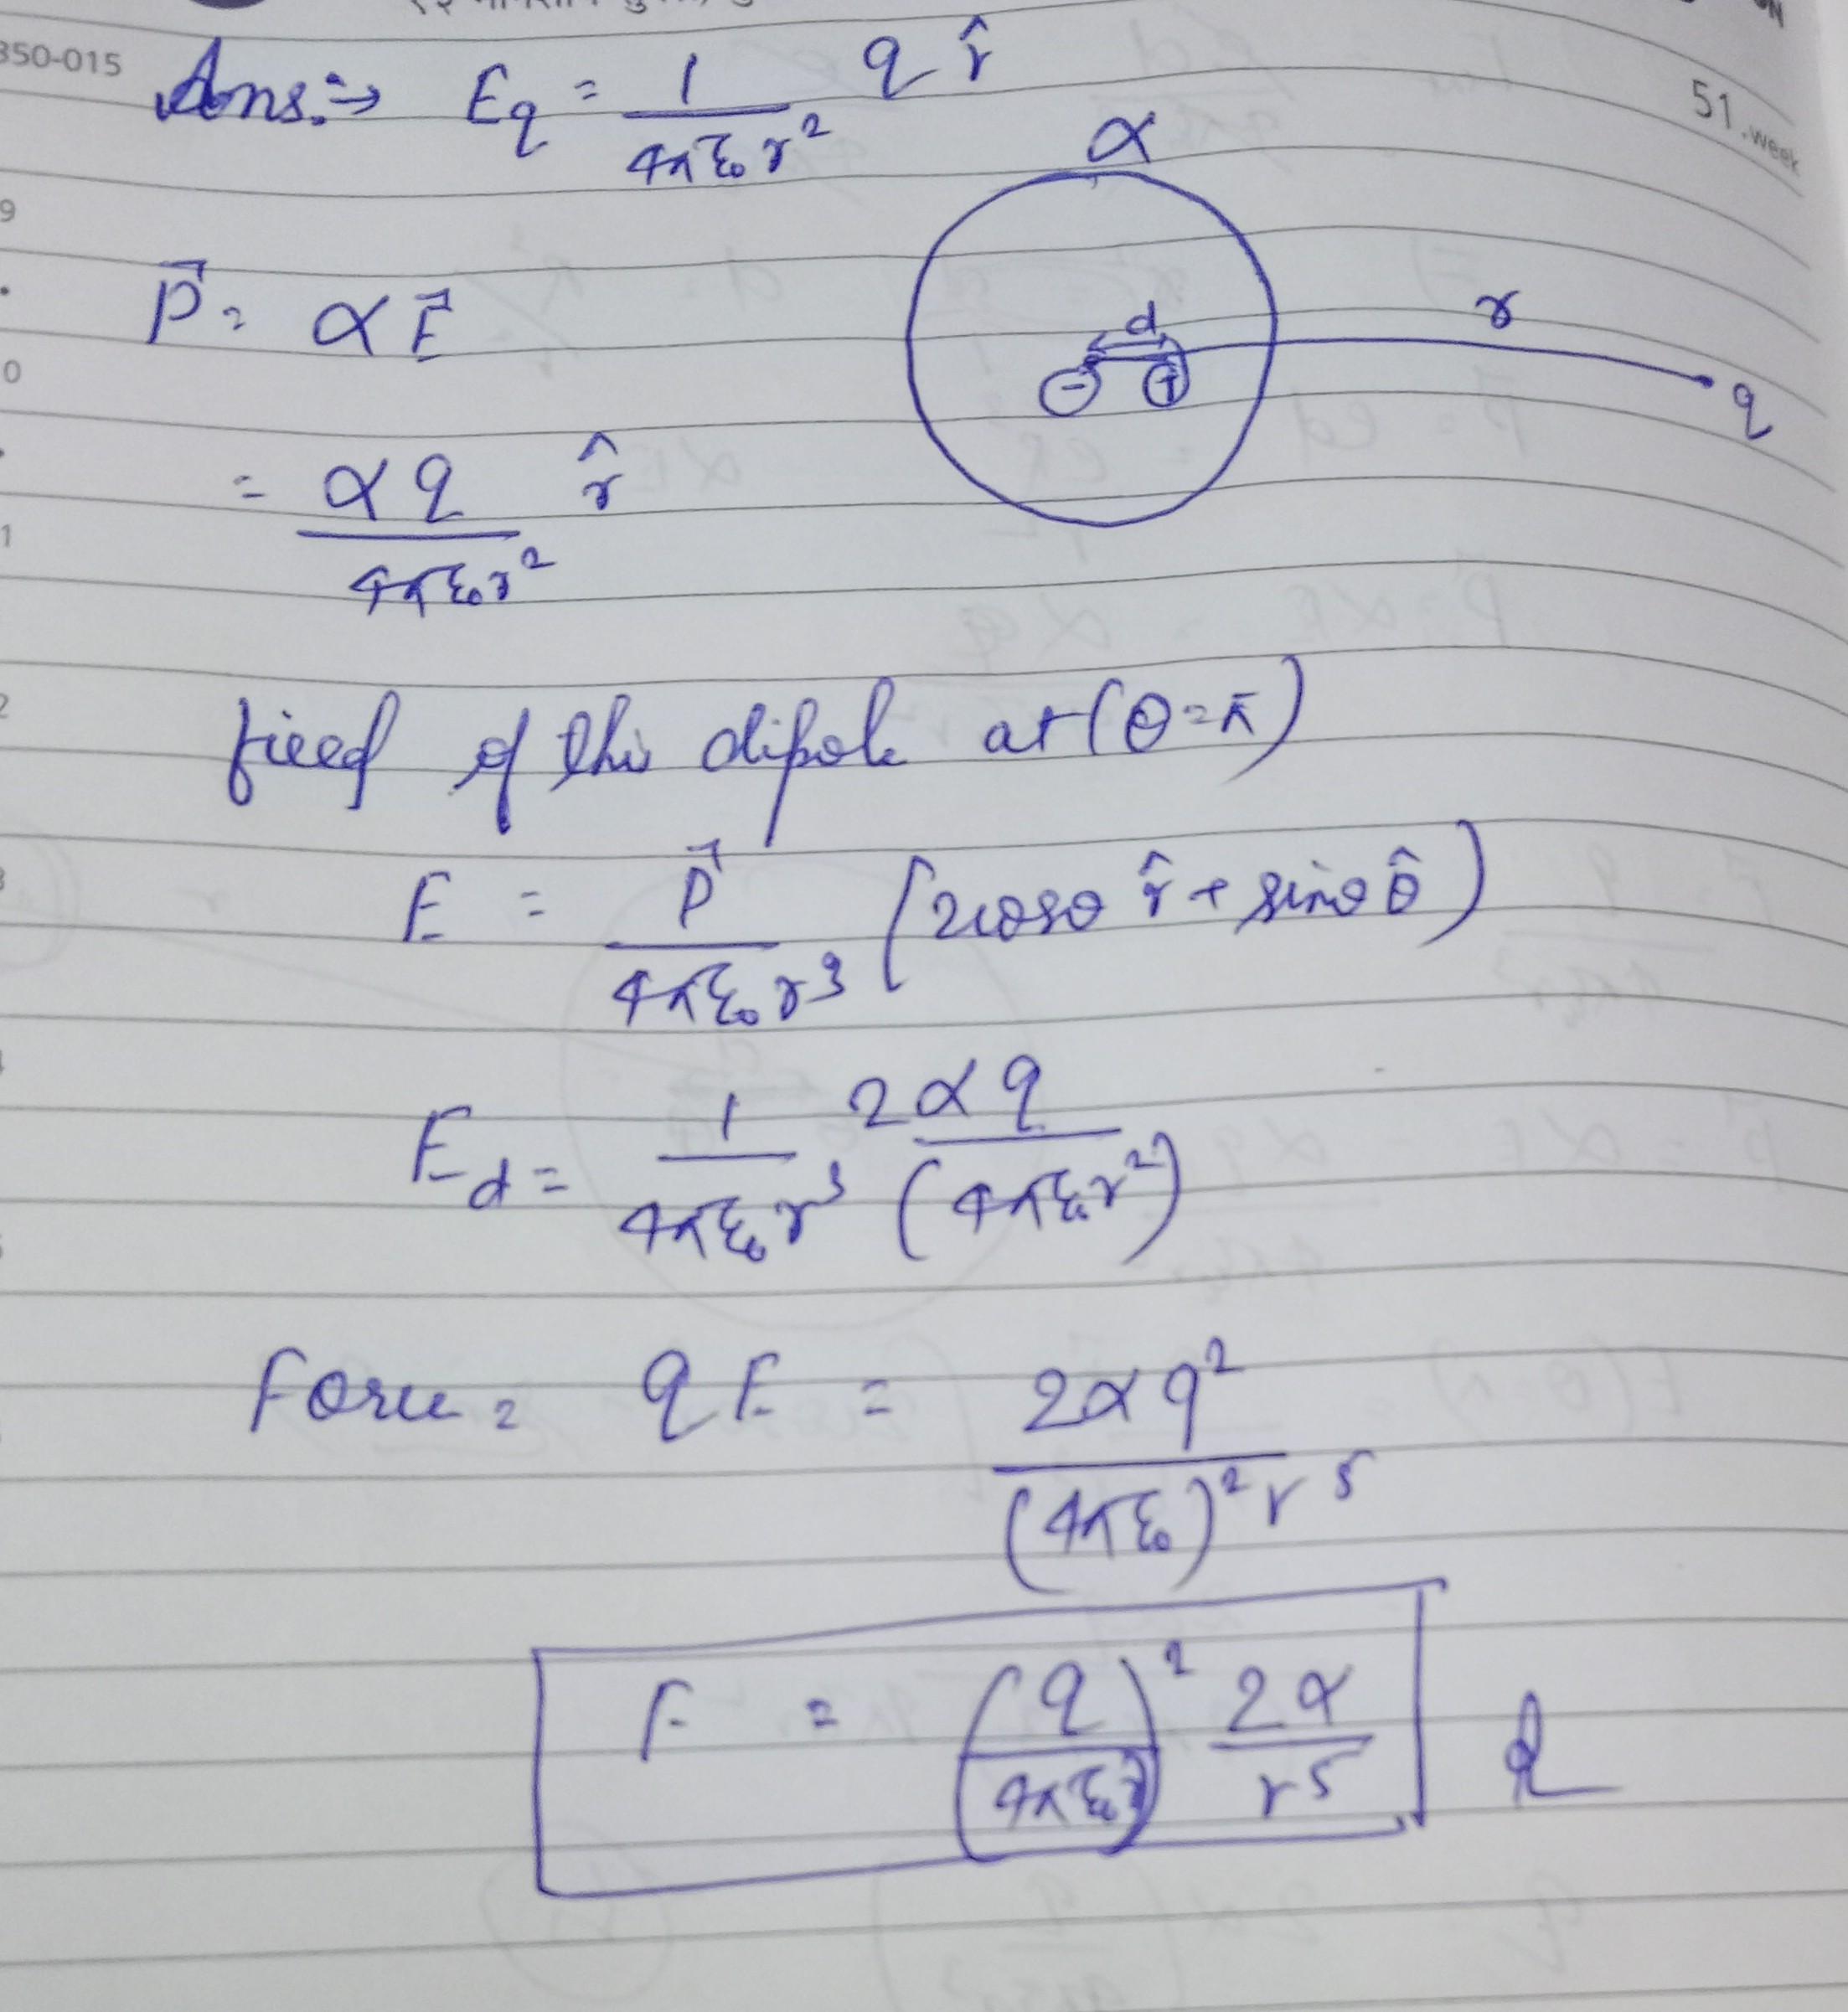 350-015
51.week
Ans:→ E_q = 1/(4πε₀r²) q r̂
α
9
P⃗ = αE⃗
d
r
q
- +
0
= αq/(4πε₀r²) r̂
1
2
fieed of this dipole at (θ=π)
3
E = P⃗/(4πε₀r³) (2cosθ r̂ + sinθ θ̂)
E_d = 1/(4πε₀r³) 2αq/(4πε₀r²)
Force = qE = 2αq²/((4πε₀)²r⁵)
F = (q/4πε₀)² 2α/r⁵